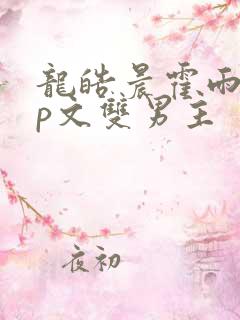 龍皓晨霍雨
p文雙男主
夜初